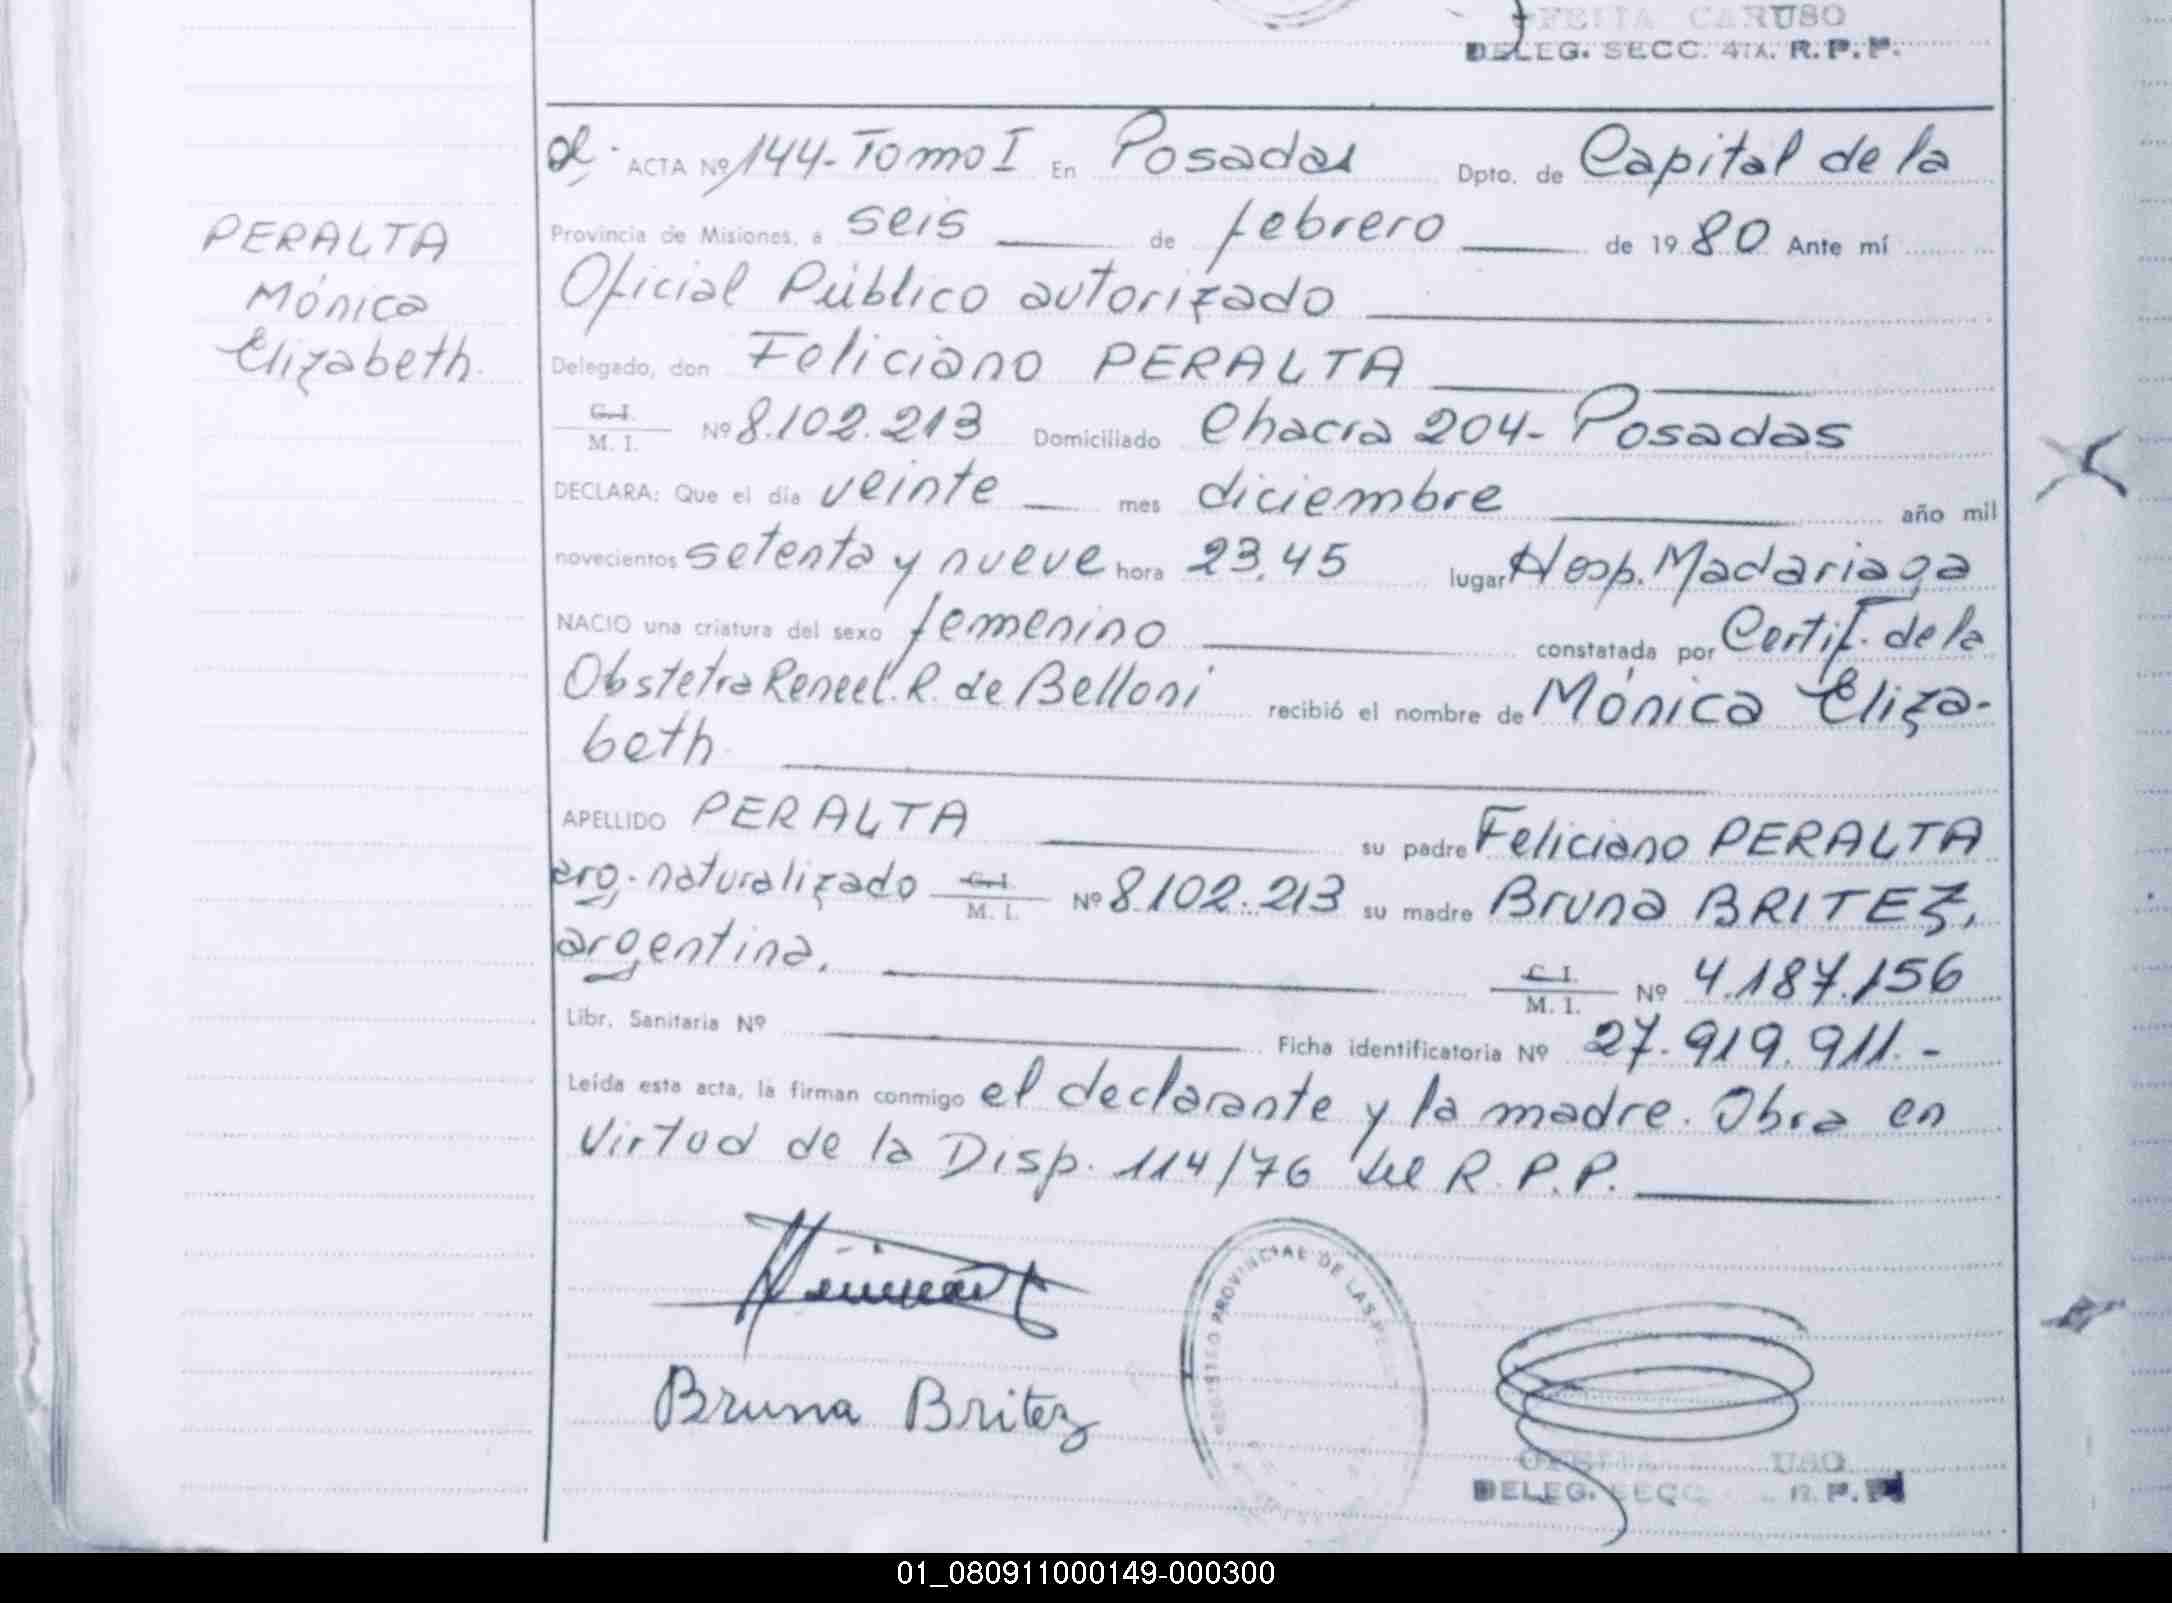 OFELIA CARUSO
DELEG. SECC. 4TA. R.P.P.
ACTA Nº 144-Tomo I En Posadas Dpto. de Capital de la
Provincia de Misiones, a seis de febrero de 1980 Ante mí
Oficial Público autorizado
Delegado, don Feliciano PERALTA
C.I.
M. I. Nº 8.102.213 Domiciliado Chacra 204- Posadas
DECLARA: Que el día veinte mes diciembre año mil
novecientos setenta y nueve hora 23,45 lugar Hosp. Madariaga
NACIO una criatura del sexo femenino constatada por Certif. de la
Obstetra R. de Belloni recibió el nombre de Mónica Eliza-
beth
APELLIDO PERALTA su padre Feliciano PERALTA
arg. naturalizado C.I.
M. I. Nº 8.102.213 su madre Bruna BRITEZ,
argentina. C.I.
M. I. Nº 4.187.156
Libr. Sanitaria Nº Ficha identificatoria Nº 27.919.911.-
Leída esta acta, la firman conmigo el declarante y la madre. Obra en
Virtud de la Disp. 114/76 del R.P.P.
PERALTA
Mónica
Elizabeth.
Bruna Britez
REGISTRO PROVINCIAL DE LAS
DELEG. SECC. P.P.
01_080911000149-000300